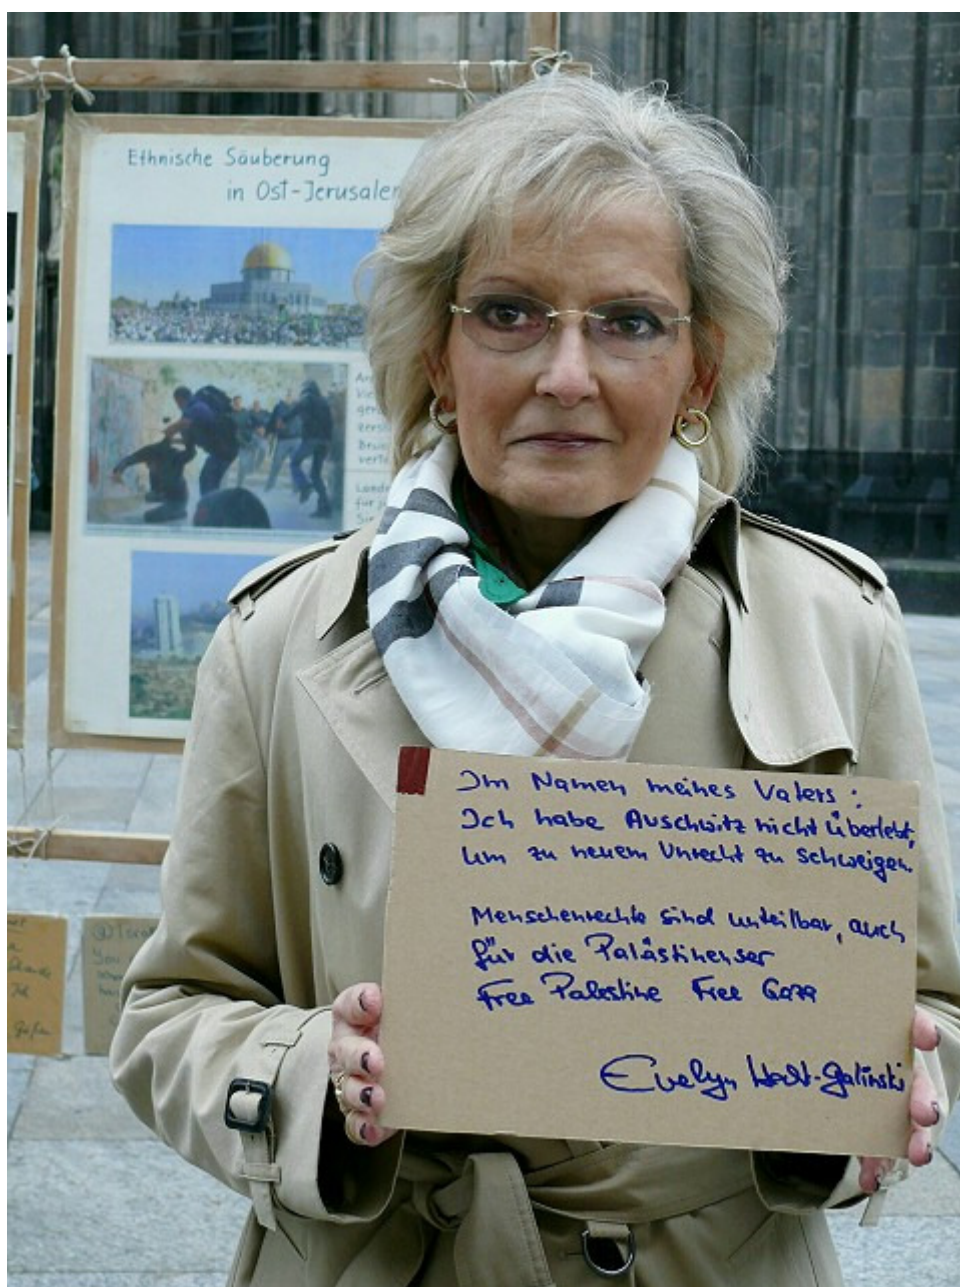 Ethnische Säuberung
in Ost-Jerusalem
Im Namen meines Vaters:
Ich habe Auschwitz nicht überlebt,
um zu neuem Unrecht zu schweigen.
Menschenrechte sind unteilbar, auch
für die Palästinenser
Free Palestine Free Gaza
Evelyn Hecht-Galinski
You